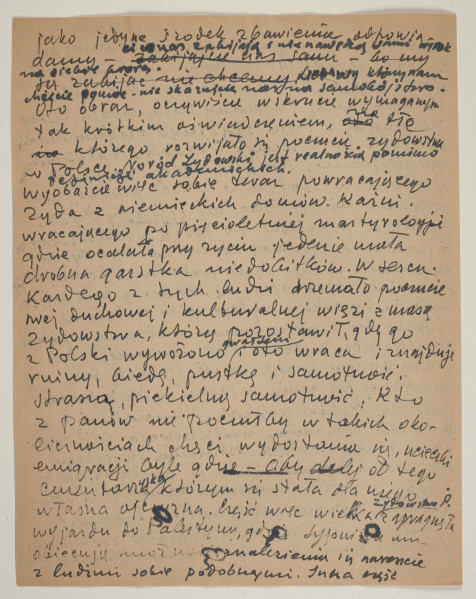 jako jedyne środek zbawienia odpowia-
damy – zabijając nas sami – bo my
się zabijać nie chcemy
chcecie pomóc – nie skazujcie nas na samobójstwo –
Oto obraz, oczywiście w skrócie wymaganym
tak krótkim oświadczeniem, oto tło
na którego rozwijało się poczucie żydowstwa
w Polsce. Naród Żydowski jest realnością pomimo
definicji akademickich.
wyobraźcie więc sobie teraz powracającego
Żyda z niemieckich domów Kaźni.
wracającego po pięcioletniej martyrologii
gdzie ocalała przy życiu jedynie mała
drobna garstka niedobitków. W sercu
każdego z tych ludzi drzemało poczucie
swej duchowej i kulturalnej więzi z masą
żydowstwa, którą pozostawił, gdy go
z Polski wywożono i oto wraca i znajduje
ruiny, biedę, pustkę i samotność.
straszną, piekielną samotność. Kto
z panów nie poczułby w takich oko-
licznościach chęci wydostania się, ucieczki
emigracji byle gdzie – aby dalej od tego
cmentarzyska którym się stała dla niego
własna ojczyzna. Część więc wielka
żydowstwa P. zapragnęła
wyjazdu do Palestyny, gdzie syjoniści im
obiecują możność znalezienia się nareszcie
z ludźmi sobie podobnymi. Inna część